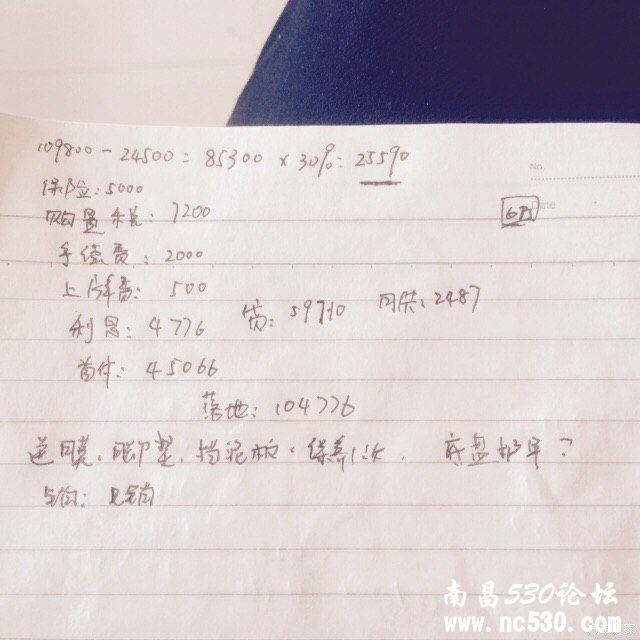 109800-24500=85300×30%=25590
No
保险:5000
购置税:7200
Date
手续费:2000
上牌费:500
利息:4776 贷:59710 月供:2487
首付:45066
落地:104776
送贴膜、脚垫、挡泥板、保养1次、底盘护甲?
南昌530论坛
www.nc530.com